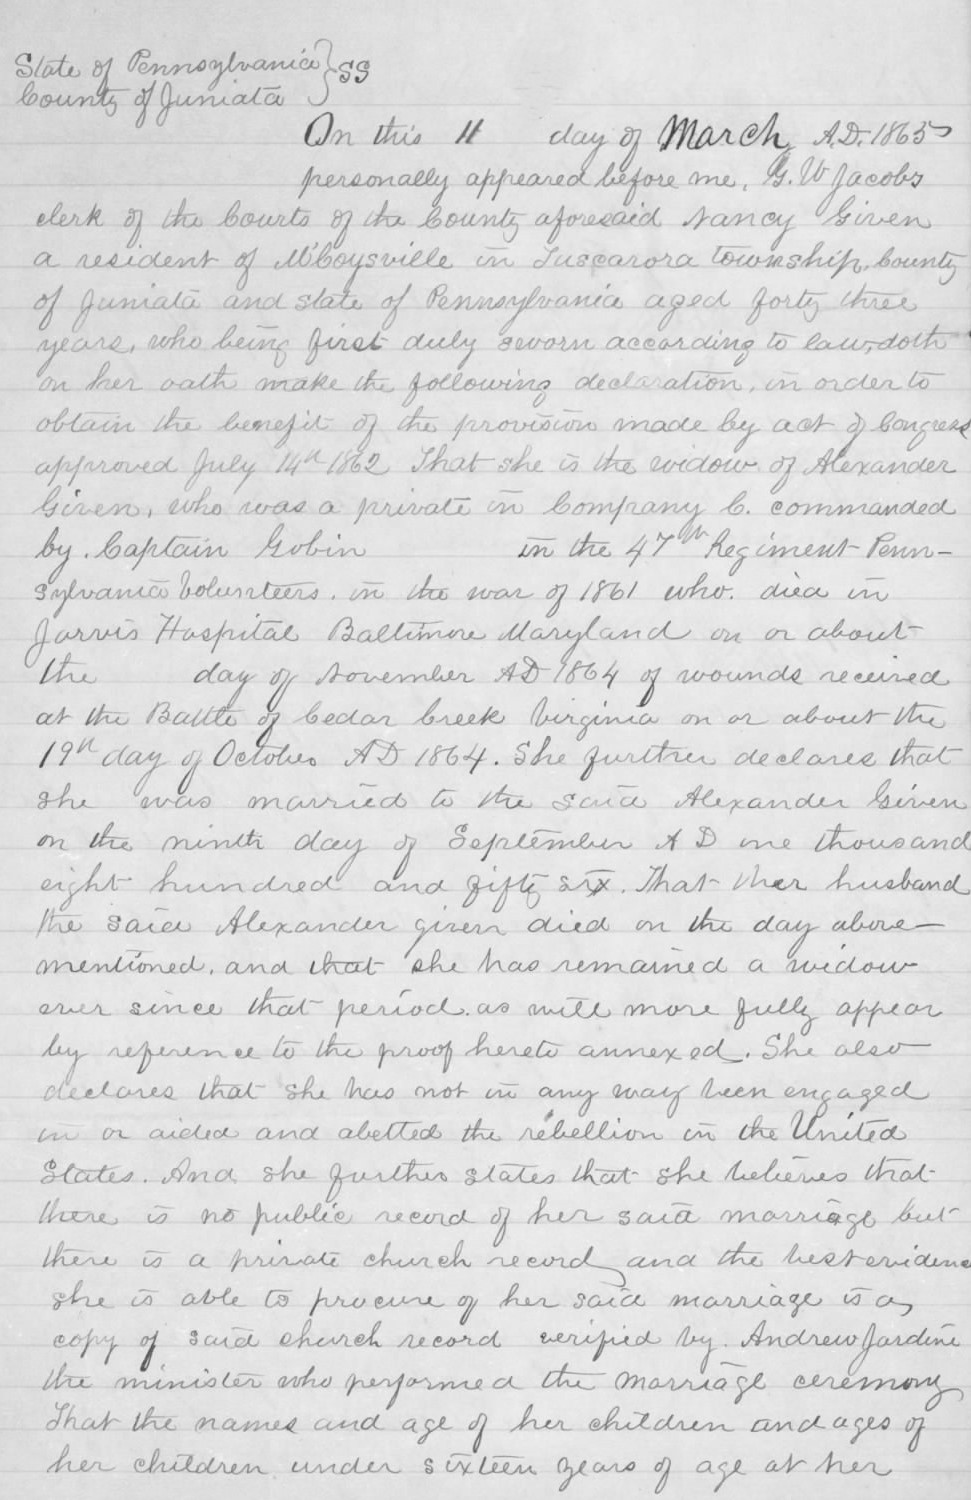 State of Pennsylvania } SS
County of Juniata
On this 11 day of March A.D. 1865
personally appeared before me, G. W Jacobs
clerk of the Courts of the County aforesaid Nancy Given
a resident of McCoysville in Tuscarora township, County
of Juniata and state of Pennsylvania aged forty three
years, who being first duly sworn according to law, doth
on her oath make the following declaration, in order to
obtain the benefit of the provision made by act of Congress
approved July 14th 1862 That she is the widow of Alexander
Given, who was a private in Company C. commanded
by. Captain Gobin in the 47th Regiment Penn-
sylvania Volunteers. in the war of 1861 who. died in
Jarvis Hospital Baltimore Maryland on or about
the day of November AD 1864 of wounds received
at the Battle of Cedar Creek Virginia on or about the
19th day of October AD 1864. She further declares that
she was married to the said Alexander Given
on the ninth day of September A D one thousand
eight hundred and fifty six. That her husband
the said Alexander given died on the day above-
mentioned, and that she has remained a widow
ever since that period. as will more fully appear
by reference to the proof hereto annexed. She also
declares that she has not in any way been engaged
in or aided and abetted the rebellion in the United
States. And she further states that she believes that
there is no public record of her said marriage but
there is a private church record and the best evidence
she is able to procure of her said marriage is a,
copy of said church record verified by. Andrew Jardine
the minister who performed the marriage ceremony
That the names and age of her children and ages of
her children under sixteen years of age at her